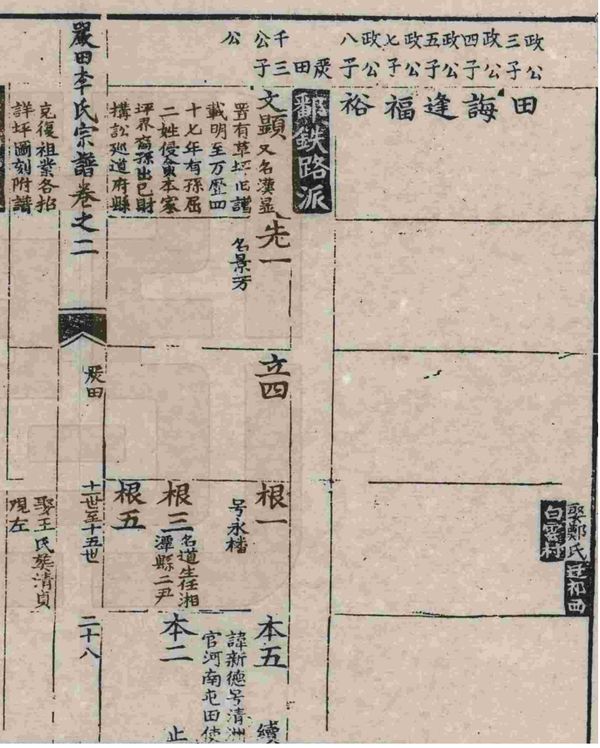 政公三子田
政公四子誨
政公五子逢
政公七子福
政公八子裕
娶鄭氏迁祁西
白雲村
鄱鉄路派
嚴田千三公子文顯
又名漢显
置有草坪旧譜
載明至万歷四
十七年有孫屈
二姓侵僉本家
坪界裔孫出已財
構訟廵道府縣
先一
名景芳
立四
根一
号永橎
根三
名道生任湘
潭縣二尹
根五
本五
諱新德号清洲
官河南屯田使
續
本二
止
公
嚴田李氏宗譜卷之二
嚴田
十一世至十五世
二十八
克復祖業各招
詳坪圖刻附譜
娶王氏葵清貞
現左